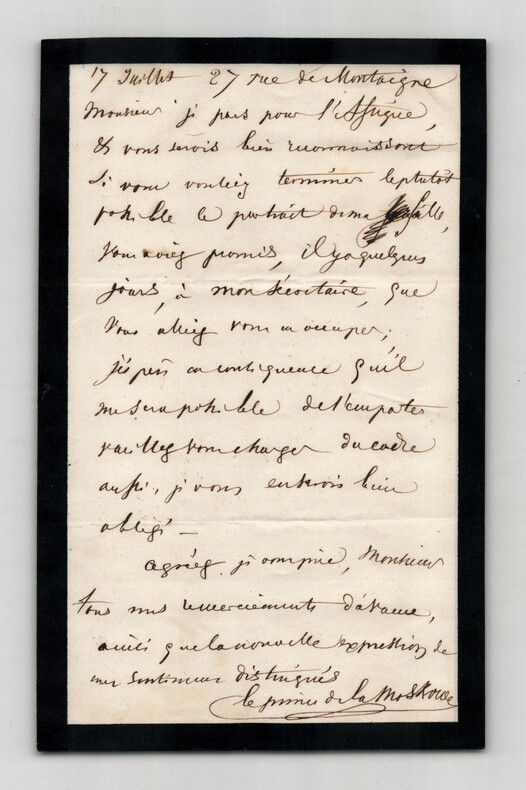 17 Juillet 27 rue de Montaigne
Monsieur je pars pour l'Affrique,
& vous serois bien reconnaissant
Si vous vouliez terminer le plutot
possible le portrait de ma fille,
Vous aviez promis, il y a quelques
jours, à mon Sécretaire, que
Vous alliez vous en occuper;
J'éspère en conséquence qu'il
me sera possible de l'emporter
veuillez vous charger du cadre
aussi, je vous en serois bien
obligé —
agréez, je vous prie, Monsieur
tous mes remerciements d'avance,
ainsi que la nouvelle expression de
mes Sentimens distingués
le prince de la Moskowa